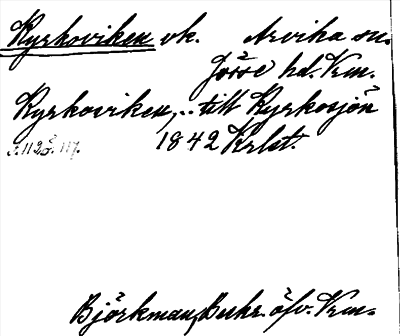 Kyrkoviken vk. Arvika sn.
Jösse hd. Vrm.
Kyrkoviken,.. till Kyrkosjön
1842 Krlst.
s. 112 o. 117.
Björkman, Beskr. öfv. Vrm.